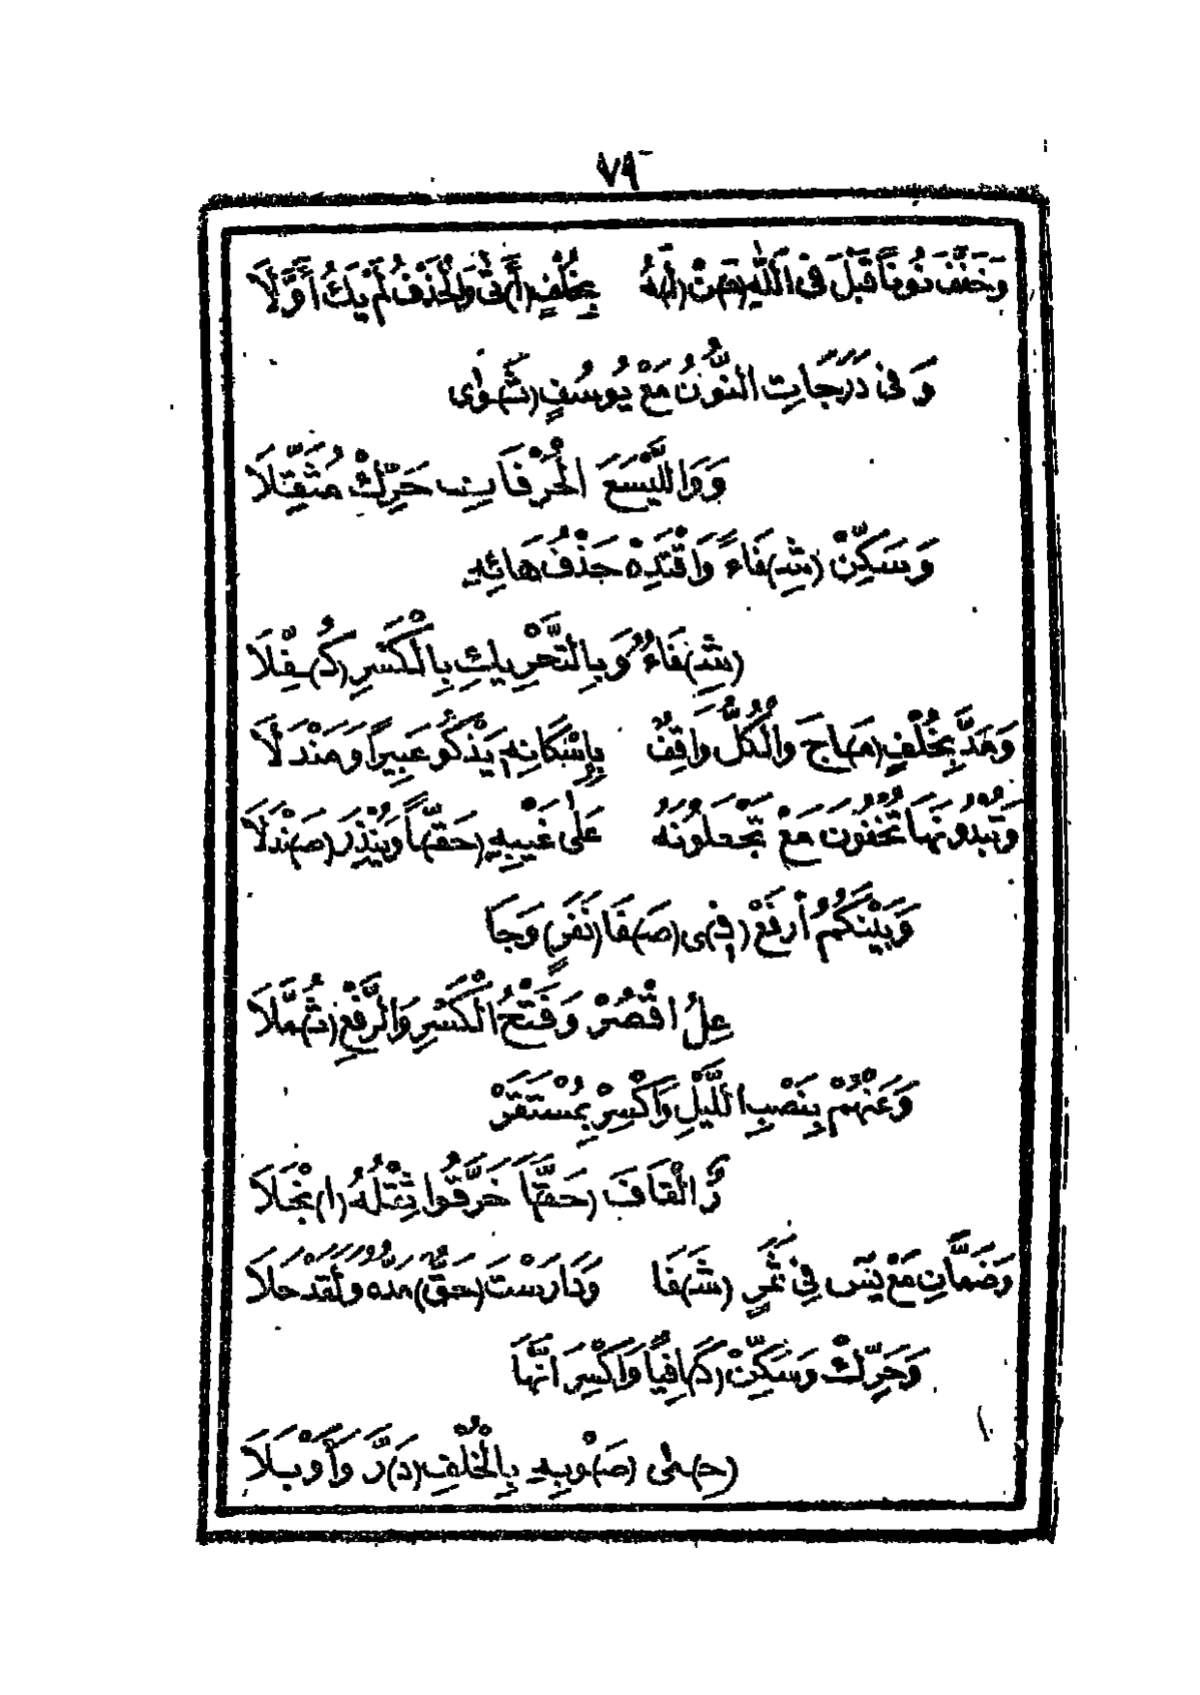 ٧٩
وَخَفَّفَ نُوناً قَبْلَ فِي اللّٰهِ (مَ)نْ (لَ)هُ بِخُلْفٍ (أَ)تَى وَالْحَذْفُ لَمْ يَكُ أَوَّلَا
وَفِي دَرَجَاتِ النُّونُ مَعْ يُوسُفٍ (ثَ)وَى
وَوَاللَّيْسَعَ الْحَرْفَانِ حَرِّكْ مُثَقِّلَا
وَسَكِّنْ (شِ)فَاءً وَاقْتَدِهْ حَذْفُ هَائِهِ
(شِ)فَاءٌ وَبِالتَّحْرِيكِ بِالْكَسْرِ (كُ)فِّلَا
وَمَدَّ بِخُلْفٍ (مَ)اجَ وَالْكُلُّ وَاقِفٌ بِإِسْكَانِهِ يَذْكُو عَبِيراً وَمَنْدَلَا
وَتُبْدُونَهَا تُخْفُونَ مَعْ تَجْعَلُونَهُ عَلَى غَيْبِهِ (حَقًّ)اً وَيُنْذِرَ (صَ)نْدَلَا
وَبَيْنَكُمُ ارْفَعْ (فِ)ي (صَ)فَا (نَفَرٍ) وَجَا
عِلُ اقْصُرْ وَفَتْحُ الْكَسْرِ وَالرَّفْعِ (ثُ)مَّلَا
وَعَنْهُمْ بِنَصْبِ اللَّيْلِ وَاكْسِرْ بِمُسْتَقَرْ
رٌ الْقَافَ (حَقًّ)اً خَرَّقُوا ثِقْلُهُ (ا)نْجَلَا
وَضَمَّانِ مَعْ يٰسٓ فِي ثَمَرٍ (شَ)فَا وَدَارَسْتَ (حَقٌّ) مَدُّهُ وَلَقَدْ حَلَا
وَحَرِّكْ وَسَكِّنْ (كَ)افِياً وَاكْسِرَ انَّهَا
(حِ)مَى (صَ)وْبِهِ بِالْخُلْفِ (دَ)رَّ وَأَوْبَلَا